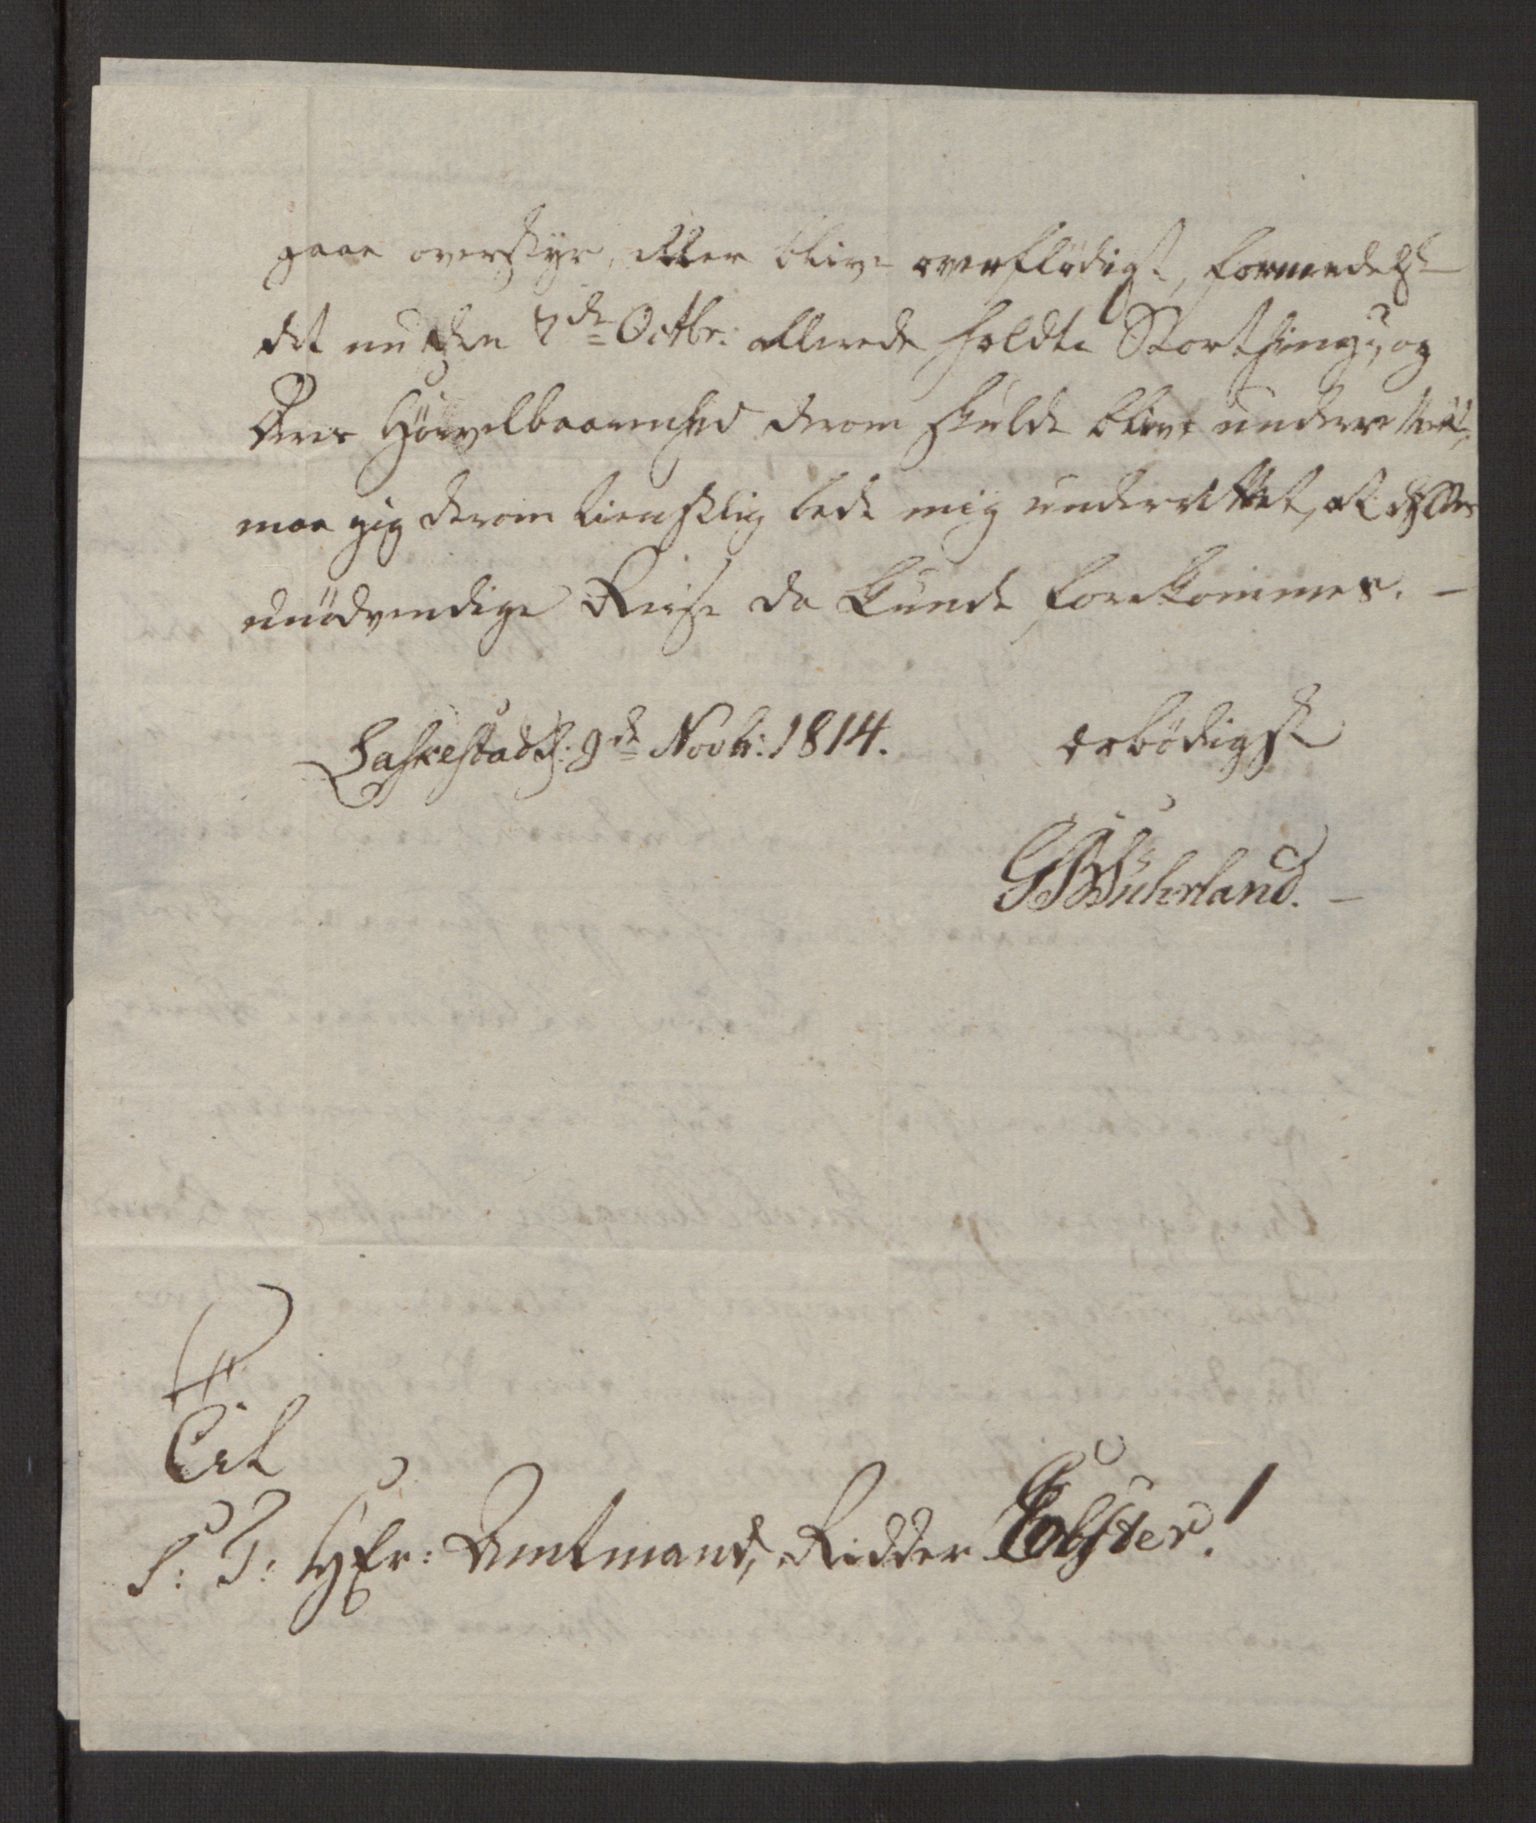 gaae overstyr, eller blive overflødigt, formedelst
det nu den 7de Octbr: allerede holdte Storthing; og
Deres Höivelbaarenhed derom skulde blive underrettet,
maa jeg derom tienstlig bede mig underrettet, at
unödvendige Reise da kunde forekommes. –
Laskestad d: 9de Novbr: 1814. ærbödigst
G Wührland. –
Til
S: T: Hr: Amtmand, Ridder Ebster!